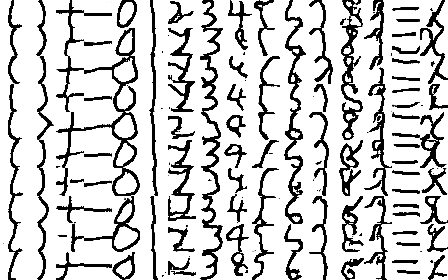 ( ) + - 0 1 2 3 4 5 6 7 8 9 = x
( ) + - 0 1 2 3 4 5 6 7 8 9 = x
( ) + - 0 1 2 3 4 5 6 7 8 9 = x
( ) + - 0 1 2 3 4 5 6 7 8 9 = x
( ) + - 0 1 2 3 4 5 6 7 8 9 = x
( ) + - 0 1 2 3 4 5 6 7 8 9 = x
( ) + - 0 1 2 3 4 5 6 7 8 9 = x
( ) + - 0 1 2 3 4 5 6 7 8 9 = x
( ) + - 0 1 2 3 4 5 6 7 8 9 = x
( ) + - 0 1 2 3 8 5 6 7 8 9 = x